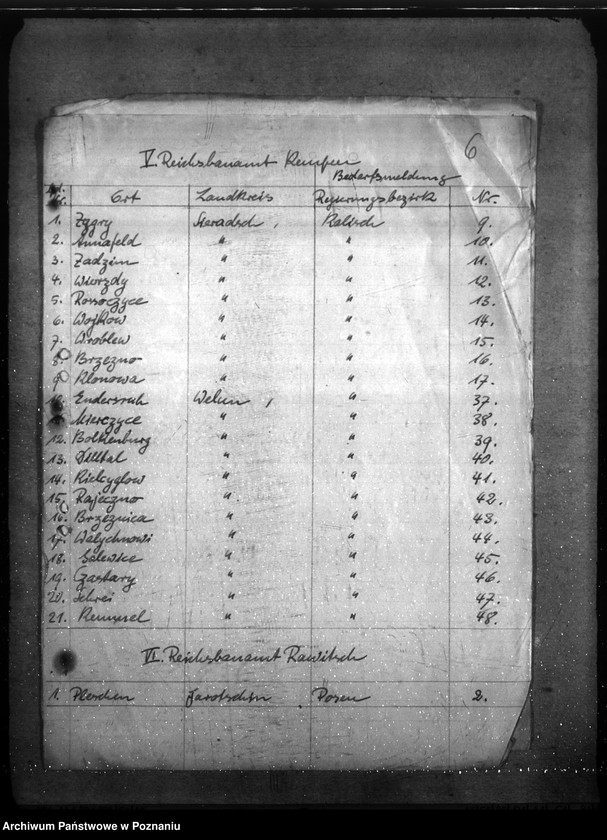 6
V. Reichsbauamt Kempen
Bedarfsmeldung
Lfd. Nr. Ort Landkreis Regierungsbezirk Nr.
1. Zygry Sieradsch, Kalisch 9.
2. Annafeld " " 10.
3. Zadzim " " 11.
4. Wiorzdy " " 12.
5. Rossoczyce " " 13.
6. Wojkow " " 14.
7. Wroblew " " 15.
8. Brzezno " " 16.
9. Klonowa " " 17.
10. Endersruh Welun, " 37.
11. Mierczyce " " 38.
12. Bolkenburg " " 39.
13. Dilltal " " 40.
14. Kielczyglow " " 41.
15. Rajeczno " " 42.
16. Brzeznica " " 43.
17. Walychnowi " " 44.
18. Galewice " " 45.
19. Czastary " " 46.
20. " " 47.
21. " " 48.
VI. Reichsbauamt Rawitsch
1. Pleschen Jarotschin Posen 2.
Archiwum Państwowe w Poznaniu